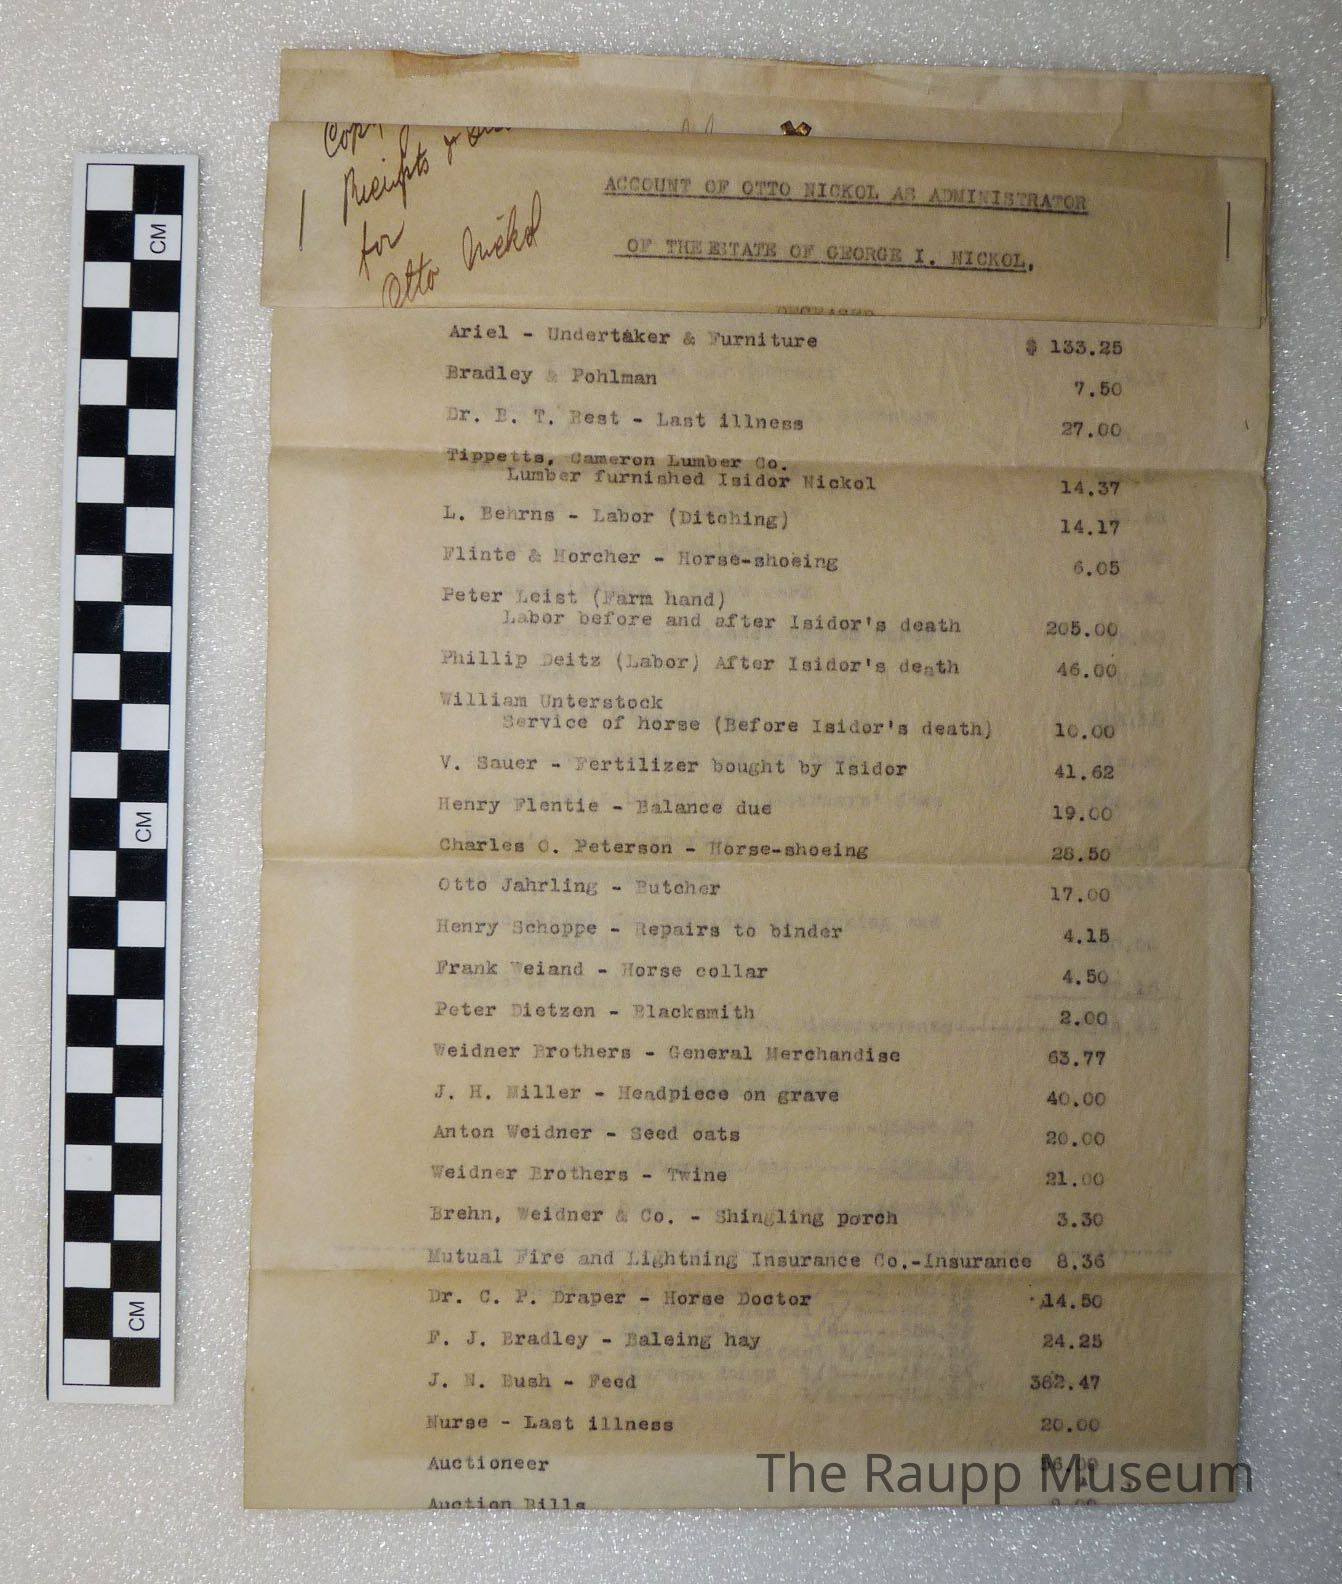 Copy
Receipts &
for
Otto Nickol
ACCOUNT OF OTTO NICKOL AS ADMINISTRATOR
OF THE ESTATE OF GEORGE I. NICKOL,
DECEASED
Ariel - Undertaker & Furniture $ 133.25
Bradley & Pohlman 7.50
Dr. B. T. Best - Last illness 27.00
Tippetts, Cameron Lumber Co.
Lumber furnished Isidor Nickol 14.37
L. Behrns - Labor (Ditching) 14.17
Flinte & Horcher - Horse-shoeing 6.05
Peter Leist (Farm hand)
Labor before and after Isidor's death 205.00
Phillip Deitz (Labor) After Isidor's death 46.00
William Unterstock
Service of horse (Before Isidor's death) 10.00
V. Sauer - Fertilizer bought by Isidor 41.62
Henry Flentie - Balance due 19.00
Charles O. Peterson - Horse-shoeing 28.50
Otto Jahrling - Butcher 17.00
Henry Schoppe - Repairs to binder 4.15
Frank Weiand - Horse collar 4.50
Peter Dietzen - Blacksmith 2.00
Weidner Brothers - General Merchandise 63.77
J. H. Miller - Headpiece on grave 40.00
Anton Weidner - Seed oats 20.00
Weidner Brothers - Twine 21.00
Brehn, Weidner & Co. - Shingling porch 3.30
Mutual Fire and Lightning Insurance Co.-Insurance 8.36
Dr. C. P. Draper - Horse Doctor 14.50
F. J. Bradley - Baleing hay 24.25
J. N. Bush - Feed 382.47
Nurse - Last illness 20.00
Auctioneer
Auction Bills
The Raupp Museum
CM
CM
CM